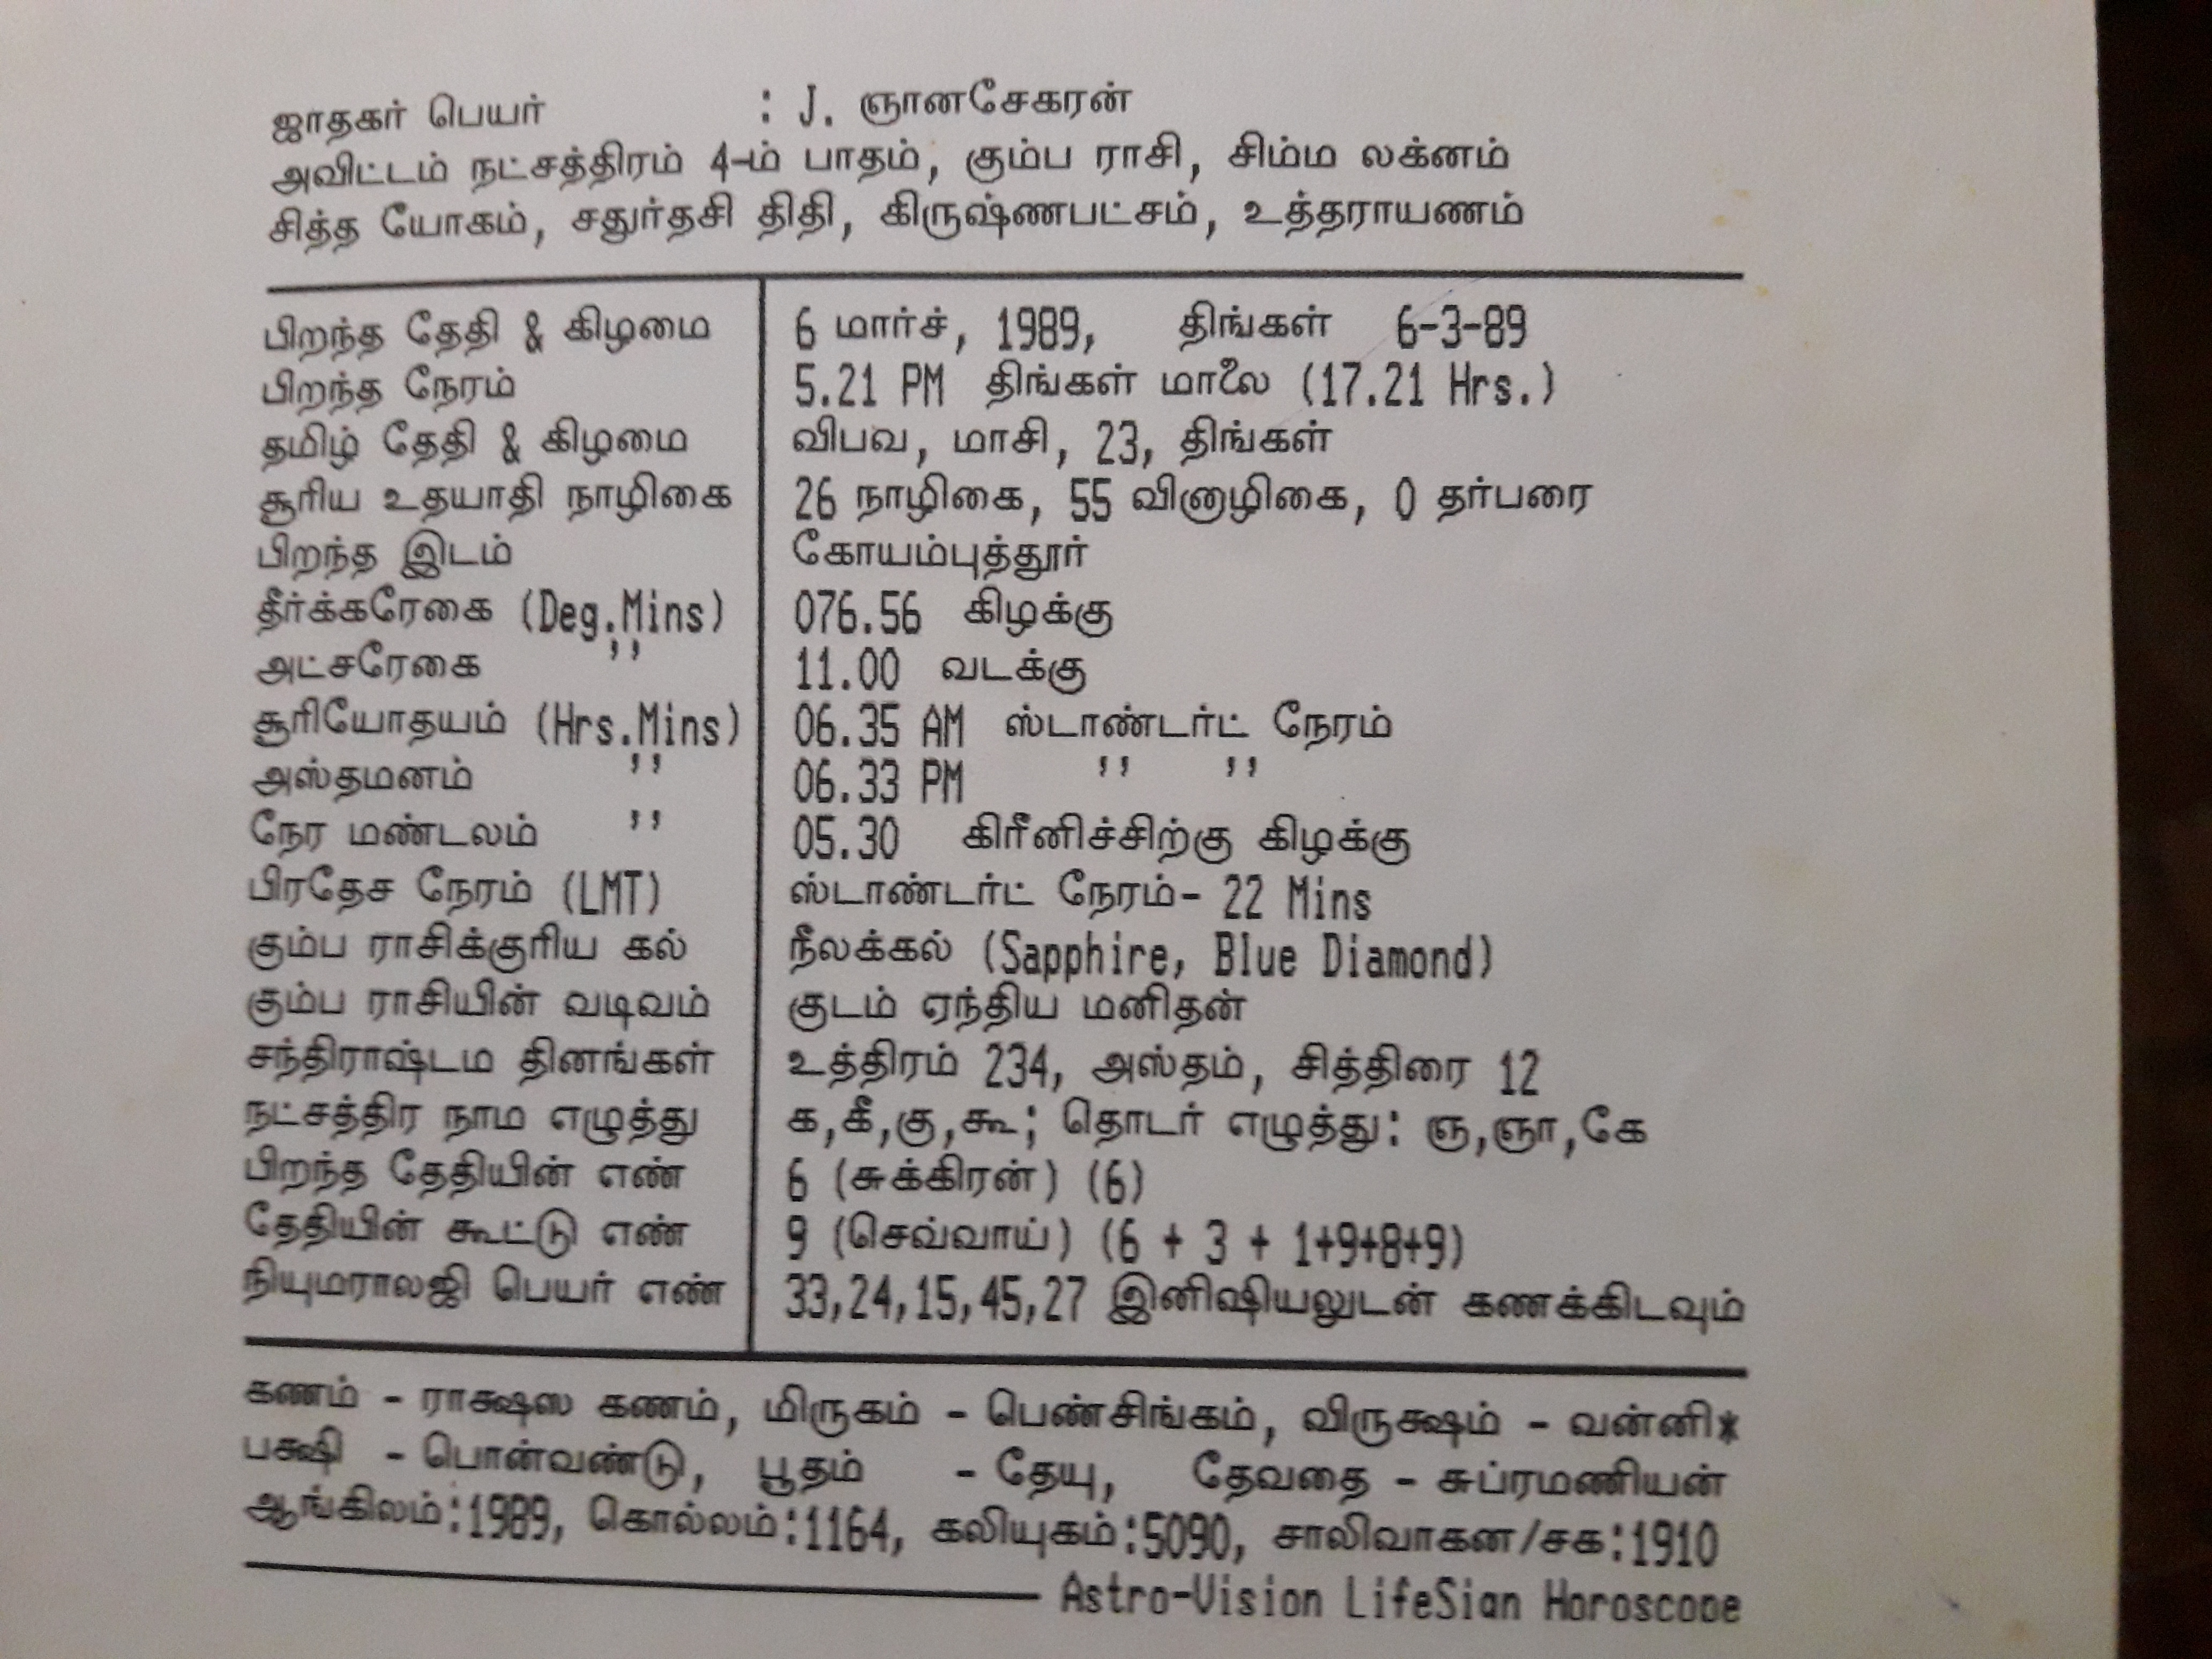 ஜாதகர் பெயர் : J. ஞானசேகரன்
அவிட்டம் நட்சத்திரம் 4-ம் பாதம், கும்ப ராசி, சிம்ம லக்னம்
சித்த யோகம், சதுர்தசி திதி, கிருஷ்ணபட்சம், உத்தராயணம்
பிறந்த தேதி & கிழமை 6 மார்ச், 1989, திங்கள் 6-3-89
பிறந்த நேரம் 5.21 PM திங்கள் மாலை (17.21 Hrs.)
தமிழ் தேதி & கிழமை விபவ, மாசி, 23, திங்கள்
சூரிய உதயாதி நாழிகை 26 நாழிகை, 55 வினாழிகை, 0 தர்பரை
பிறந்த இடம் கோயம்புத்தூர்
தீர்க்கரேகை (Deg.Mins) 076.56 கிழக்கு
அட்சரேகை ,, 11.00 வடக்கு
சூரியோதயம் (Hrs.Mins) 06.35 AM ஸ்டாண்டர்ட் நேரம்
அஸ்தமனம் ,, 06.33 PM ,, ,,
நேர மண்டலம் ,, 05.30 கிரீனிச்சிற்கு கிழக்கு
பிரதேச நேரம் (LMT) ஸ்டாண்டர்ட் நேரம்- 22 Mins
கும்ப ராசிக்குரிய கல் நீலக்கல் (Sapphire, Blue Diamond)
கும்ப ராசியின் வடிவம் குடம் ஏந்திய மனிதன்
சந்திராஷ்டம தினங்கள் உத்திரம் 234, அஸ்தம், சித்திரை 12
நட்சத்திர நாம எழுத்து க,கீ,கு,கூ; தொடர் எழுத்து: ஞ,ஞா,கே
பிறந்த தேதியின் எண் 6 (சுக்கிரன்) (6)
தேதியின் கூட்டு எண் 9 (செவ்வாய்) (6 + 3 + 1+9+8+9)
நியுமராலஜி பெயர் எண் 33,24,15,45,27 இனிஷியலுடன் கணக்கிடவும்
கணம் - ராக்ஷஸ கணம், மிருகம் - பெண்சிங்கம், விருக்ஷம் - வன்னி*
பக்ஷி - பொன்வண்டு, பூதம் - தேயு, தேவதை - சுப்ரமணியன்
ஆங்கிலம்:1989, கொல்லம்:1164, கலியுகம்:5090, சாலிவாகன/சக:1910
Astro-Vision LifeSign Horoscope